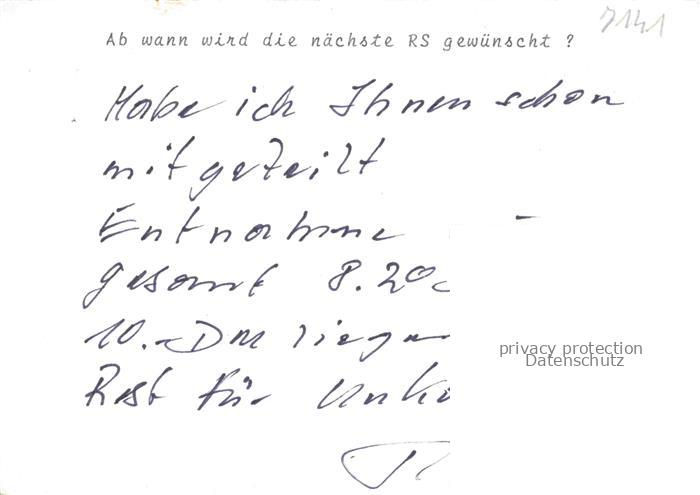 7141
Ab wann wird die nächste RS gewünscht ?
Habe ich Ihnen schon
mitgeteilt
Entnahme -
gesamt 8.20
10.- DM liegen
privacy protection
Datenschutz
Rest für Unko